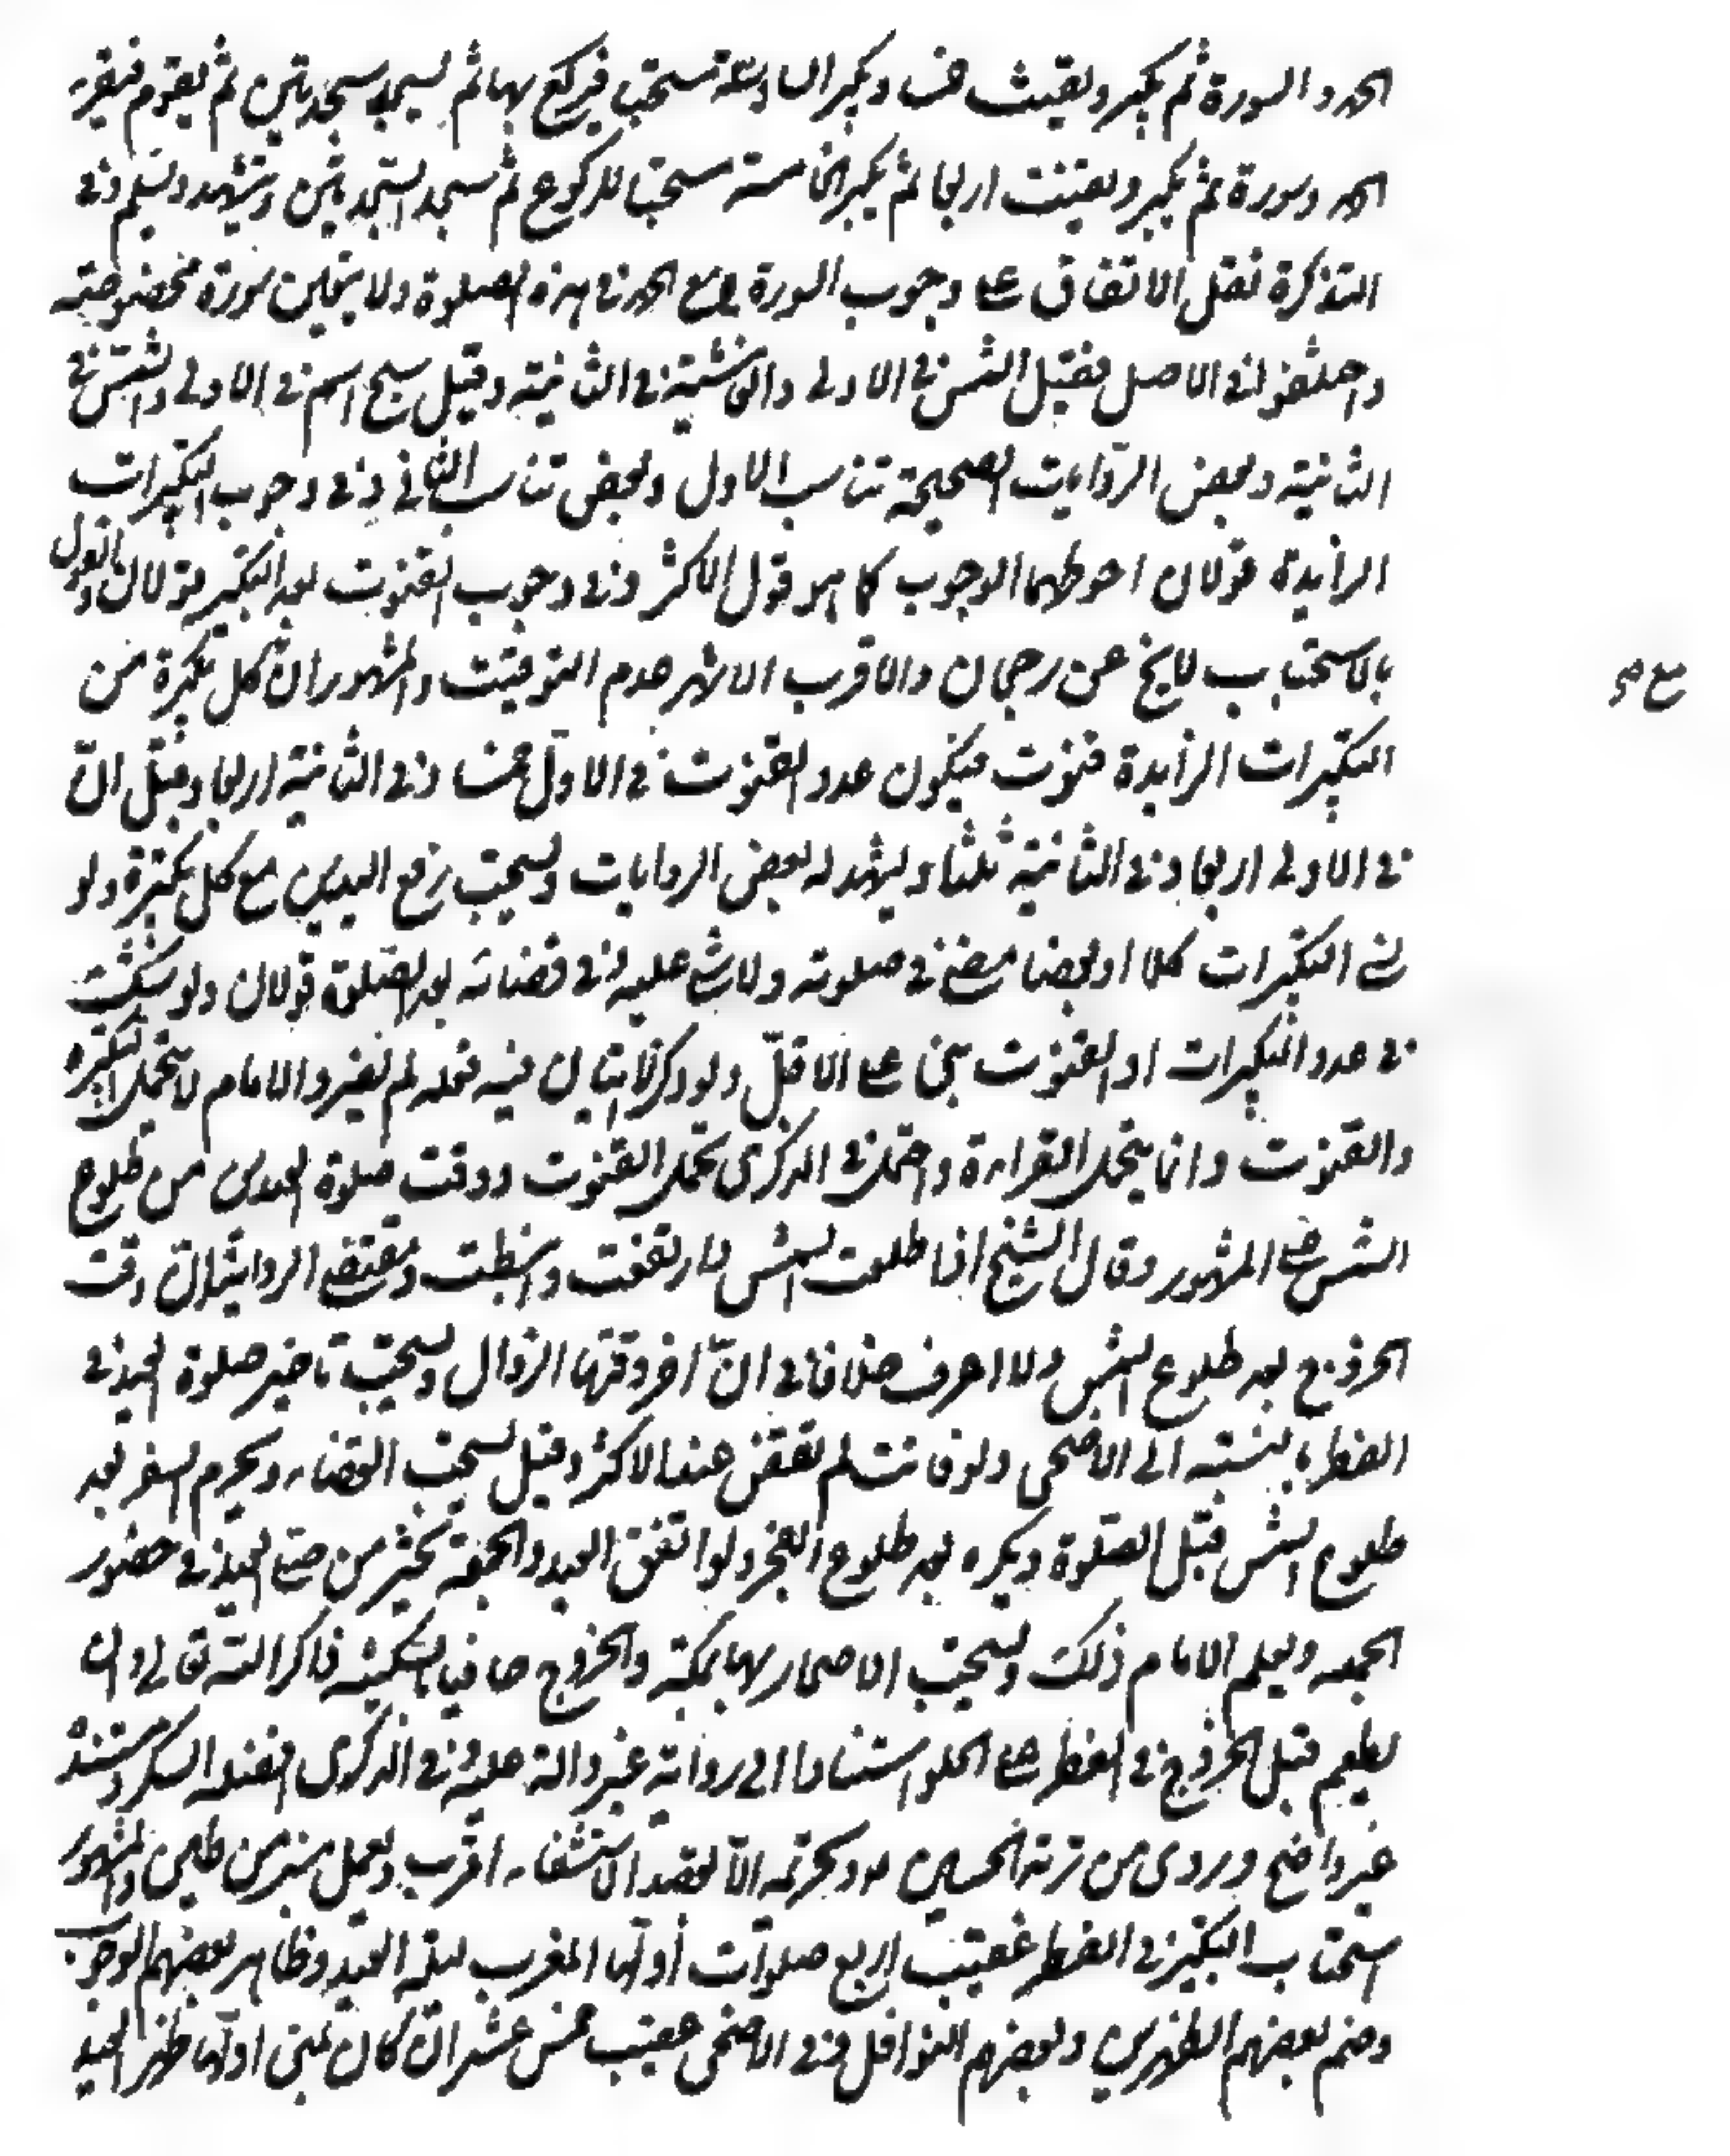 الحمد والسورة ثم يكبر ويقنت خمسا ويكبر السادسة مستحبا فيركع بها ثم يسجد سجدتين ثم يقوم فيقرء
الحمد وسورة ثم يكبر ويقنت اربعا ثم يكبر الخامسة مستحبا للركوع ثم يسجد السجدتين ويتشهد ويسلم وفي
التذكرة نقل الاتفاق على وجوب السورة مع الحمد في هذه الصلوة ولا يتعين سورة مخصوصة
واختلفوا في الاصل فقيل الشمس في الاولى والغاشية في الثانية وقيل سبح اسم في الاولى والشمس في
الثانية وبعض الروايات الصحيحة تناسب الاول وبعض تناسب الثاني وفي وجوب التكبيرات
الزايدة قولان احوطهما الوجوب كما هو قول الاكثر وفي وجوب القنوت بعد التكبير قولان والقول
بالاستحباب لا يخ عن رجحان والاقرب الاشهر عدم التوقيت والمشهور ان كل تكبيرة من
التكبيرات الزايدة قنوت فيكون عدد القنوت في الاول خمسا وفي الثانية اربعا وقيل ان
في الاولى اربعا وفي الثانية ثلثا ويشهد له بعض الروايات ويستحب رفع اليدين مع كل تكبيرة ولو
نسي التكبيرات كلا او بعضا مضى في صلوته ولا شي عليه وفي قضائه بعد الصلوة قولان ولو شك
في عدد التكبيرات او القنوت بنى على الاقل ولو ذكر الاتيان فيه بعد لم يضر والامام لا يتحمل التكبيرة
والقنوت وانما يتحمل القراءة واحتمل في الذكرى تحمل القنوت ووقت صلوة العيدين من طلوع
الشمس على المشهور وقال الشيخ اذا طلعت الشمس وارتفعت وانبسطت ومقتضى الرواية ان وقت
الخروج بعد طلوع الشمس ولا اعرف خلافا في ان اخر وقتها الزوال ويستحب تاخير صلوة العيد في
الفطر بالنسبة الى الاضحى ولو فاتت لم تقض عند الاكثر وقيل يستحب القضاء ويحرم السفر بعد
طلوع الشمس قبل الصلوة ويكره بعد طلوع الفجر ولو اتفق العيد والجمعة تخير من صلى العيد في حضور
الجمعه ويعلم الامام ذلك ويستحب الاصحار بها الا بمكة والخروج حافيا بالسكينة ذاكرا لله تعالى وان
يطعم قبل الخروج في الفطر على الحلو استنادا الى رواية غير دالة عليه وفي الذكرى افضله السكر ومستنده
غير واضح وروى من تربة الحسين ع وتحريمه الا لقصد الاستشفاء اقرب ويعمل منبر من طين والمشهور
استحباب التكبير في الفطر عقيب اربع صلوات اولها المغرب ليلة العيد وظاهر بعضهم الوجوب
وضم بعضهم الظهرين وبعضهم النوافل وفي الاضحى عقيب خمس عشر ان كان بمنى اولها ظهر العيد